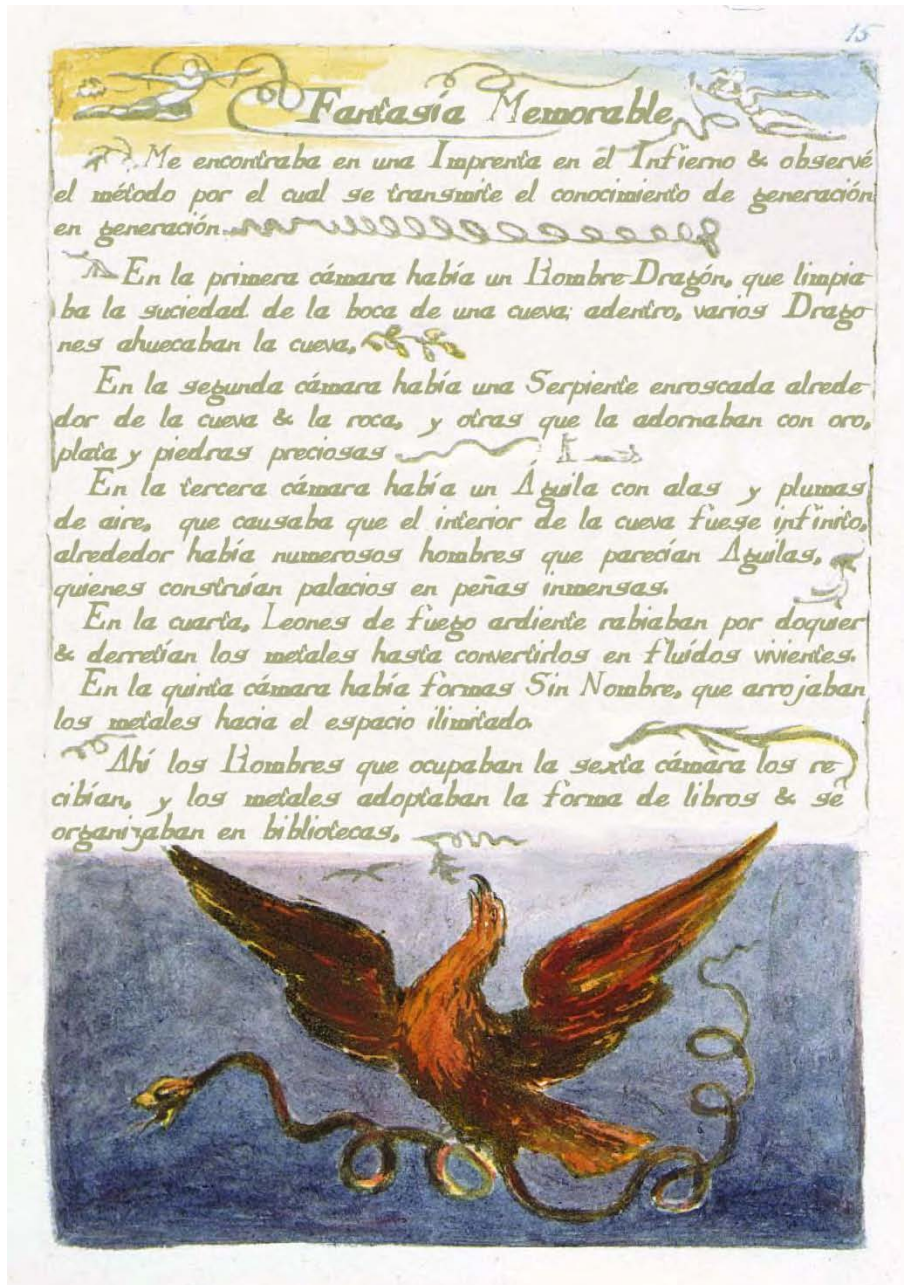 15
Fantasía Memorable
Me encontraba en una Imprenta en el Infierno & observé
el método por el cual se transmite el conocimiento de generación
en generación.
En la primera cámara había un Hombre-Dragón, que limpia-
ba la suciedad de la boca de una cueva; adentro, varios Drago
nes ahuecaban la cueva,
En la segunda cámara había una Serpiente enroscada alrede-
dor de la cueva & la roca, y otras que la adornaban con oro,
plata y piedras preciosas
En la tercera cámara había un Águila con alas y plumas
de aire, que causaba que el interior de la cueva fuese infinito,
alrededor había numerosos hombres que parecían Águilas,
quienes construían palacios en peñas inmensas.
En la cuarta, Leones de fuego ardiente rabiaban por doquier
& derretían los metales hasta convertirlos en fluídos vivientes.
En la quinta cámara había formas Sin Nombre, que arrojaban
los metales hacia el espacio ilimitado.
Ahí los Hombres que ocupaban la sexta cámara los re-
cibían, y los metales adoptaban la forma de libros & se
organizaban en bibliotecas,